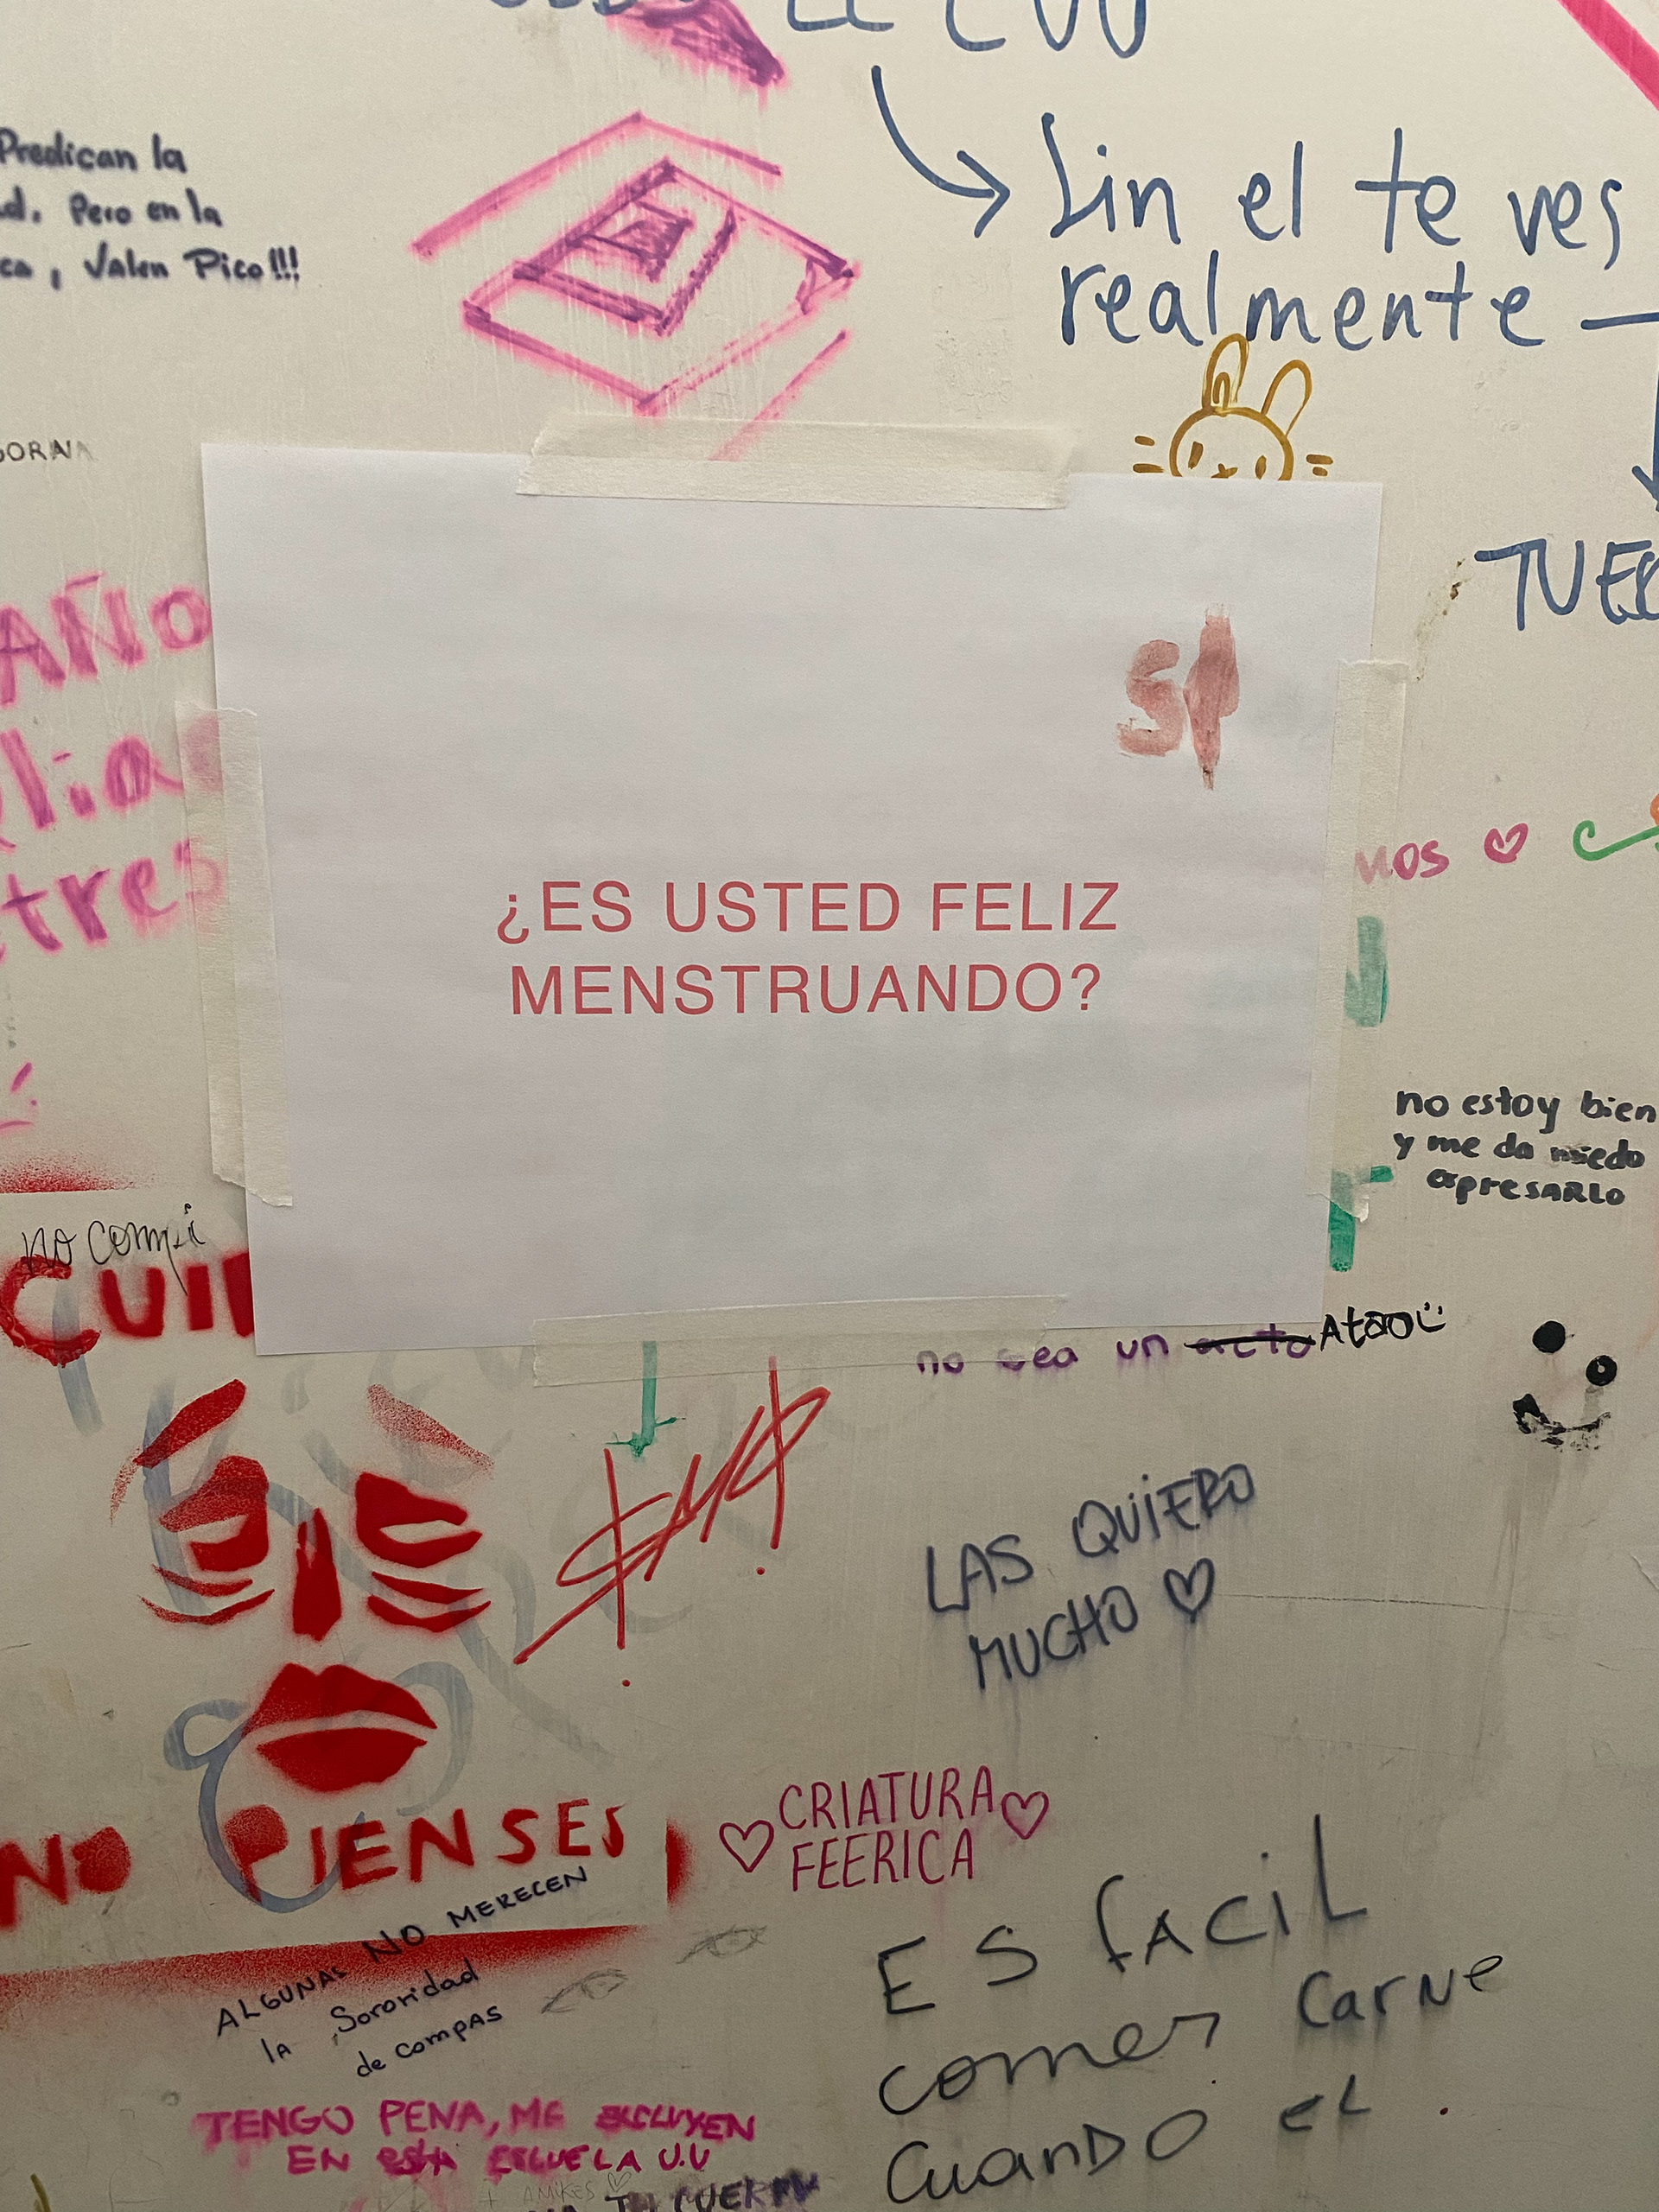 Predican la
Pero en la
Valen Pico!!!
Sin el te ves
realmente
AÑO
SI
¿ES USTED FELIZ
MENSTRUANDO?
no estoy bien
y me da miedo
expresarlo
no sea un acto Atao
CUI
LAS QUIERO
MUCHO
NO PIENSES
CRIATURA
FEERICA
ALGUNAS NO MERECEN
la Sororidad
de compas
ES fACIL
comer carne
CuanDO eL
TENGO PENA, ME EXCLUYEN
EN esta ESCUELA U.U
+ AMIKES
TU CUERPO